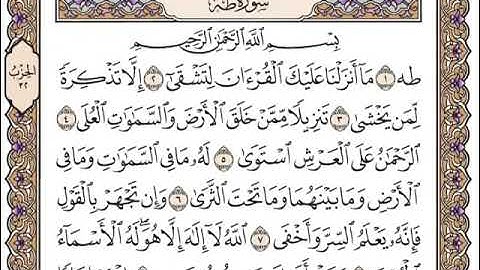 سورة طه
الحزب ٣٢
بِسْمِ اللَّهِ الرَّحْمَٰنِ الرَّحِيمِ
طه ١ مَا أَنزَلْنَا عَلَيْكَ الْقُرْءَانَ لِتَشْقَىٰ ٢ إِلَّا تَذْكِرَةً
لِّمَن يَخْشَىٰ ٣ تَنزِيلًا مِّمَّنْ خَلَقَ الْأَرْضَ وَالسَّمَٰوَٰتِ الْعُلَى ٤
الرَّحْمَٰنُ عَلَى الْعَرْشِ اسْتَوَىٰ ٥ لَهُ مَا فِي السَّمَٰوَٰتِ وَمَا فِي
الْأَرْضِ وَمَا بَيْنَهُمَا وَمَا تَحْتَ الثَّرَىٰ ٦ وَإِن تَجْهَرْ بِالْقَوْلِ
فَإِنَّهُ يَعْلَمُ السِّرَّ وَأَخْفَى ٧ اللَّهُ لَا إِلَٰهَ إِلَّا هُوَ لَهُ الْأَسْمَاءُ